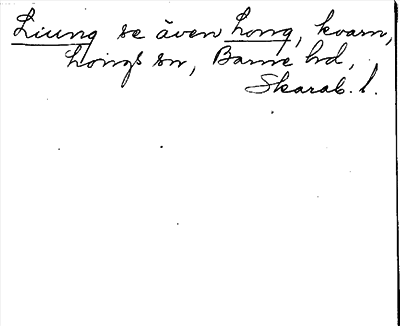 Liung se även Long, kvarn,
Longs sn, Barne hd,
Skarab. l.